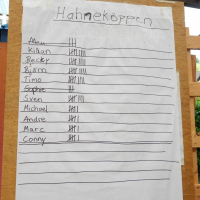 Hahnekoppen
Kilian
Becky
Björn
Timo
Sophie
Sven
Michael
Andre
Marc
Conny